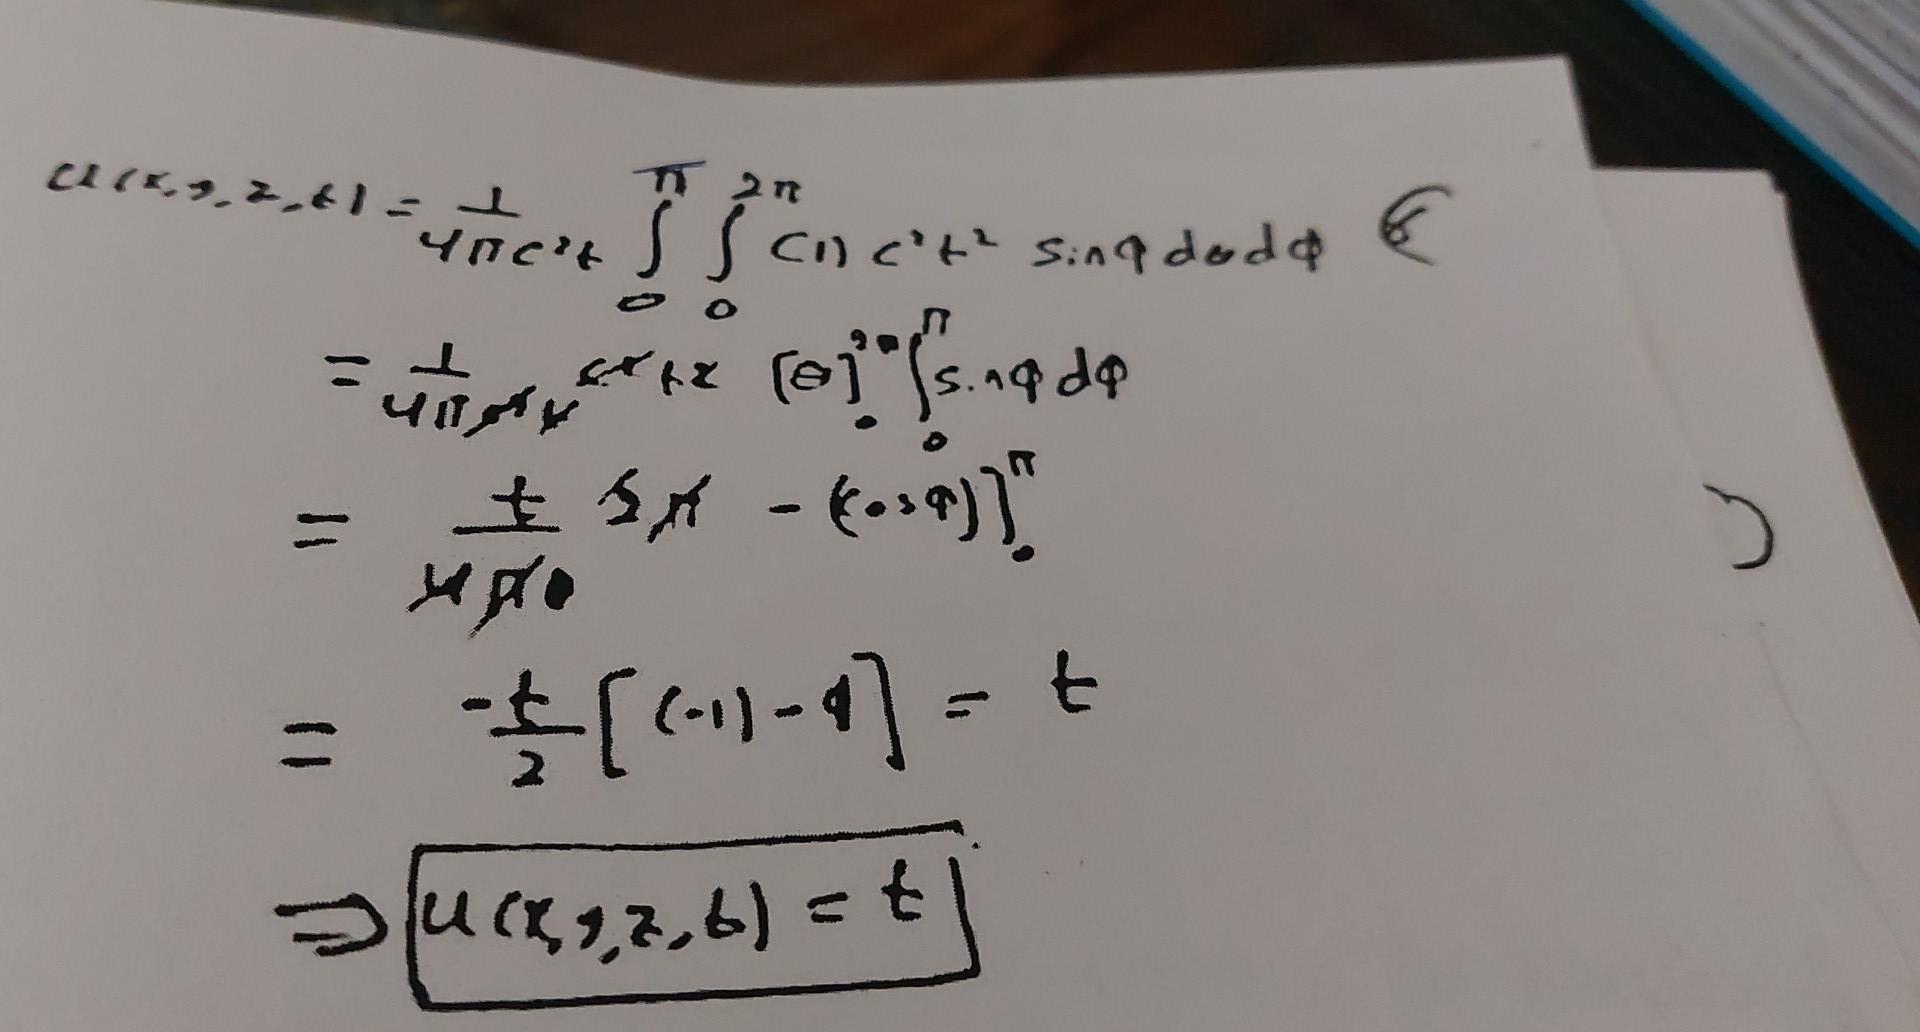 u(x,y,z,t) = 1/4πc²t ∫₀^π ∫₀^2π (1) c²t² sinφ dθ dφ
= 1/4πc²t c²t² [θ]₀^2π ∫₀^π sinφ dφ
= t/4π 2π -(cosφ)]₀^π
= -t/2 [(-1)-1] = t
⇒ u(x,y,z,t) = t